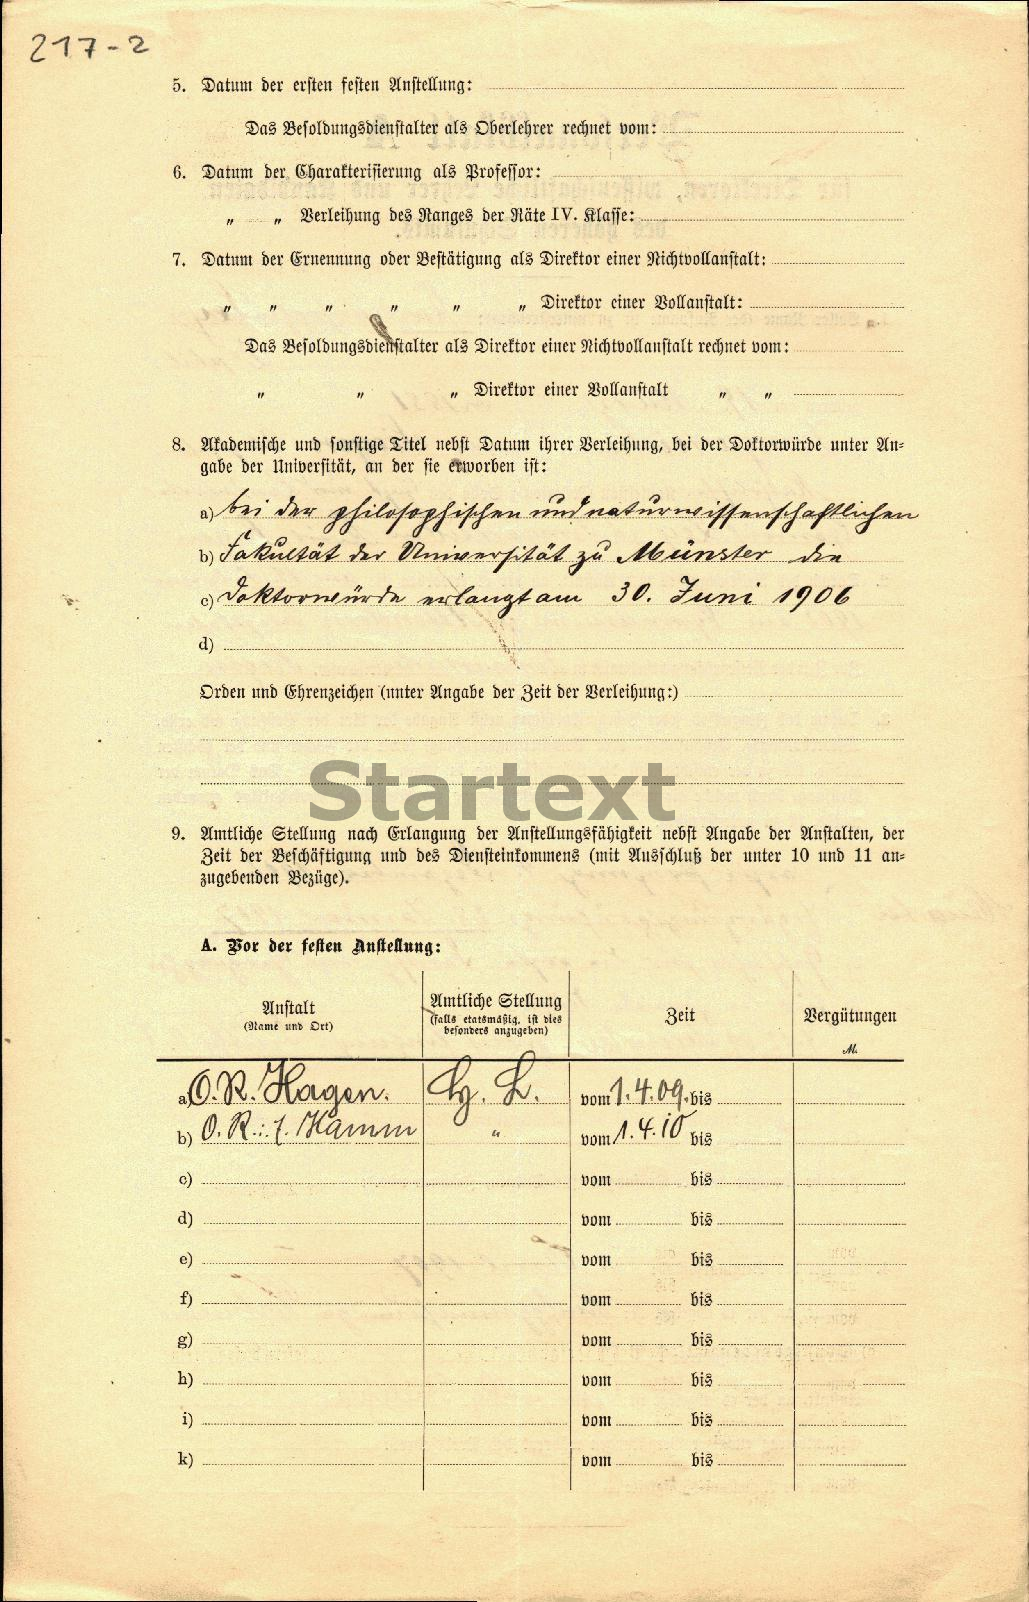 217-2
5. Datum der ersten festen Anstellung:
Das Besoldungsdienstalter als Oberlehrer rechnet vom:
6. Datum der Charakterisierung als Professor:
„ „ Verleihung des Ranges der Räte IV. Klasse:
7. Datum der Ernennung oder Bestätigung als Direktor einer Nichtvollanstalt:
„ „ „ „ „ „ Direktor einer Vollanstalt:
Das Besoldungsdienstalter als Direktor einer Nichtvollanstalt rechnet vom:
„ „ „ Direktor einer Vollanstalt „ „
8. Akademische und sonstige Titel nebst Datum ihrer Verleihung, bei der Doktorwürde unter An-
gabe der Universität, an der sie erworben ist:
a) bei der philosophischen und naturwissenschaftlichen
b) Fakultät der Universität zu Münster die
c) Doktorwürde erlangt am 30. Juni 1906
d)
Orden und Ehrenzeichen (unter Angabe der Zeit der Verleihung:)
Startext
9. Amtliche Stellung nach Erlangung der Anstellungsfähigkeit nebst Angabe der Anstalten, der
Zeit der Beschäftigung und des Diensteinkommens (mit Ausschluß der unter 10 und 11 an-
zugebenden Bezüge).
A. Vor der festen Anstellung:
Anstalt
(Name und Ort)
Amtliche Stellung
(falls etatsmäßig, ist dies
besonders anzugeben)
Zeit
Vergütungen
M.
a) O. R. Hagen. H. L. vom 1.4.09. bis
b) O. R. i. Hamm „ vom 1.4.10 bis
c) vom bis
d) vom bis
e) vom bis
f) vom bis
g) vom bis
h) vom bis
i) vom bis
k) vom bis